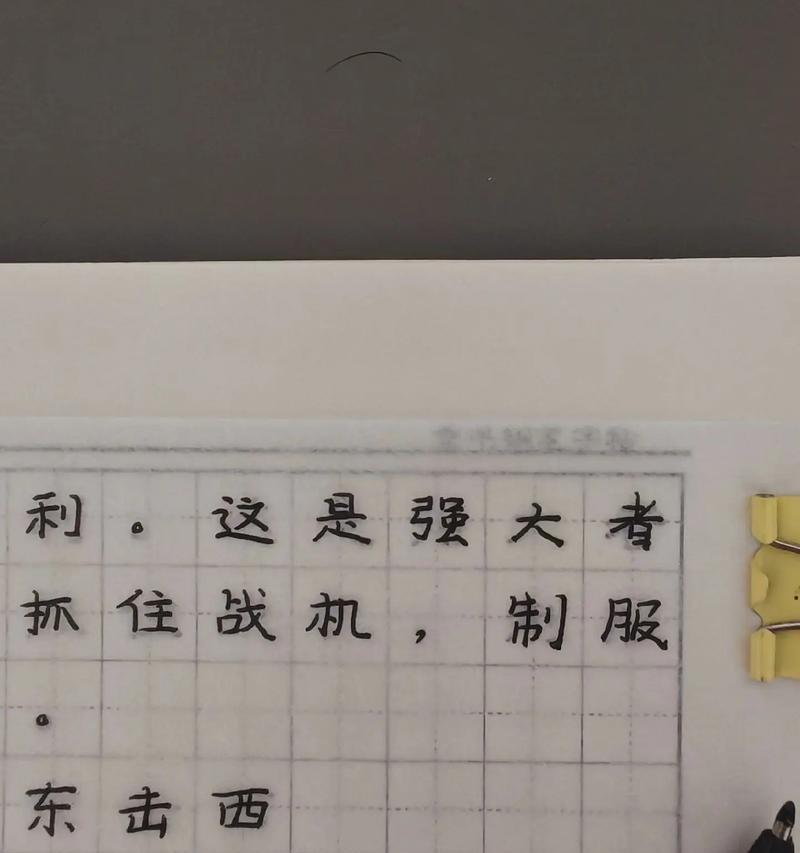 利。这是强大者
抓住战机，制服
。
东击西